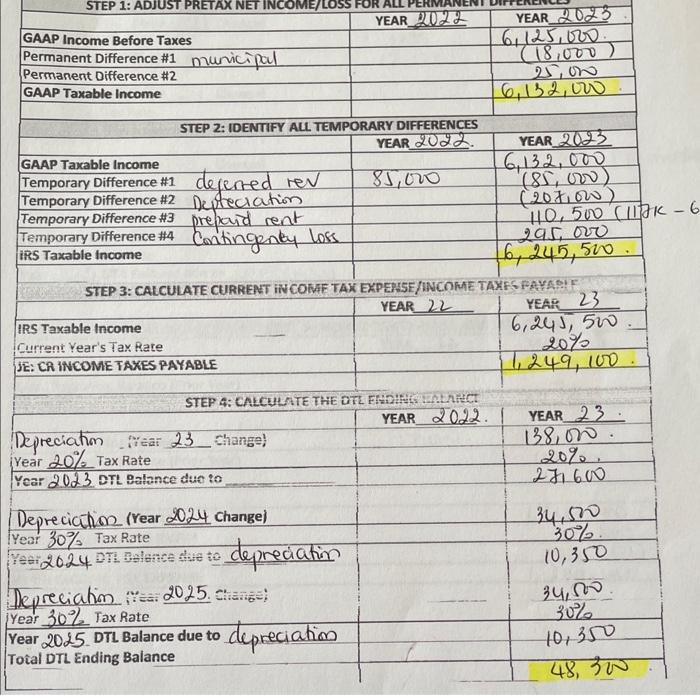 STEP 1: ADJUST PRETAX NET INCOME/LOSS FOR ALL PERMANENT DIFFERENCES
YEAR 2022 YEAR 2023
GAAP Income Before Taxes 6,125,000.
Permanent Difference #1 municipal (18,000)
Permanent Difference #2 25,000
GAAP Taxable Income 6,132,000.
STEP 2: IDENTIFY ALL TEMPORARY DIFFERENCES
YEAR 2022. YEAR 2023
GAAP Taxable Income 6,132,000
Temporary Difference #1 deferred rev 85,000 (85,000)
Temporary Difference #2 Depreciation (207,000)
Temporary Difference #3 prepaid rent 110,500 (117K - 6
Temporary Difference #4 Contingenty loss 295,000
IRS Taxable Income 6,245,500.
STEP 3: CALCULATE CURRENT INCOME TAX EXPENSE/INCOME TAXES PAYABLE
YEAR 22 YEAR 23
IRS Taxable Income 6,245,500.
Current Year's Tax Rate 20%
JE: CR INCOME TAXES PAYABLE 1,249,100.
STEP 4: CALCULATE THE DTL ENDING BALANCE
YEAR 2022. YEAR 23.
Depreciation (Year 23 Change) 138,000.
Year 20% Tax Rate 20%.
Year 2023 DTL Balance due to 27,600
Depreciation (Year 2024 Change) 34,500
Year 30% Tax Rate 30%.
Year 2024 DTL Balance due to depreciation 10,350
Depreciation (Year 2025. Change) 34,500.
Year 30% Tax Rate 30%
Year 2025 DTL Balance due to depreciation 10,350
Total DTL Ending Balance 48,300.